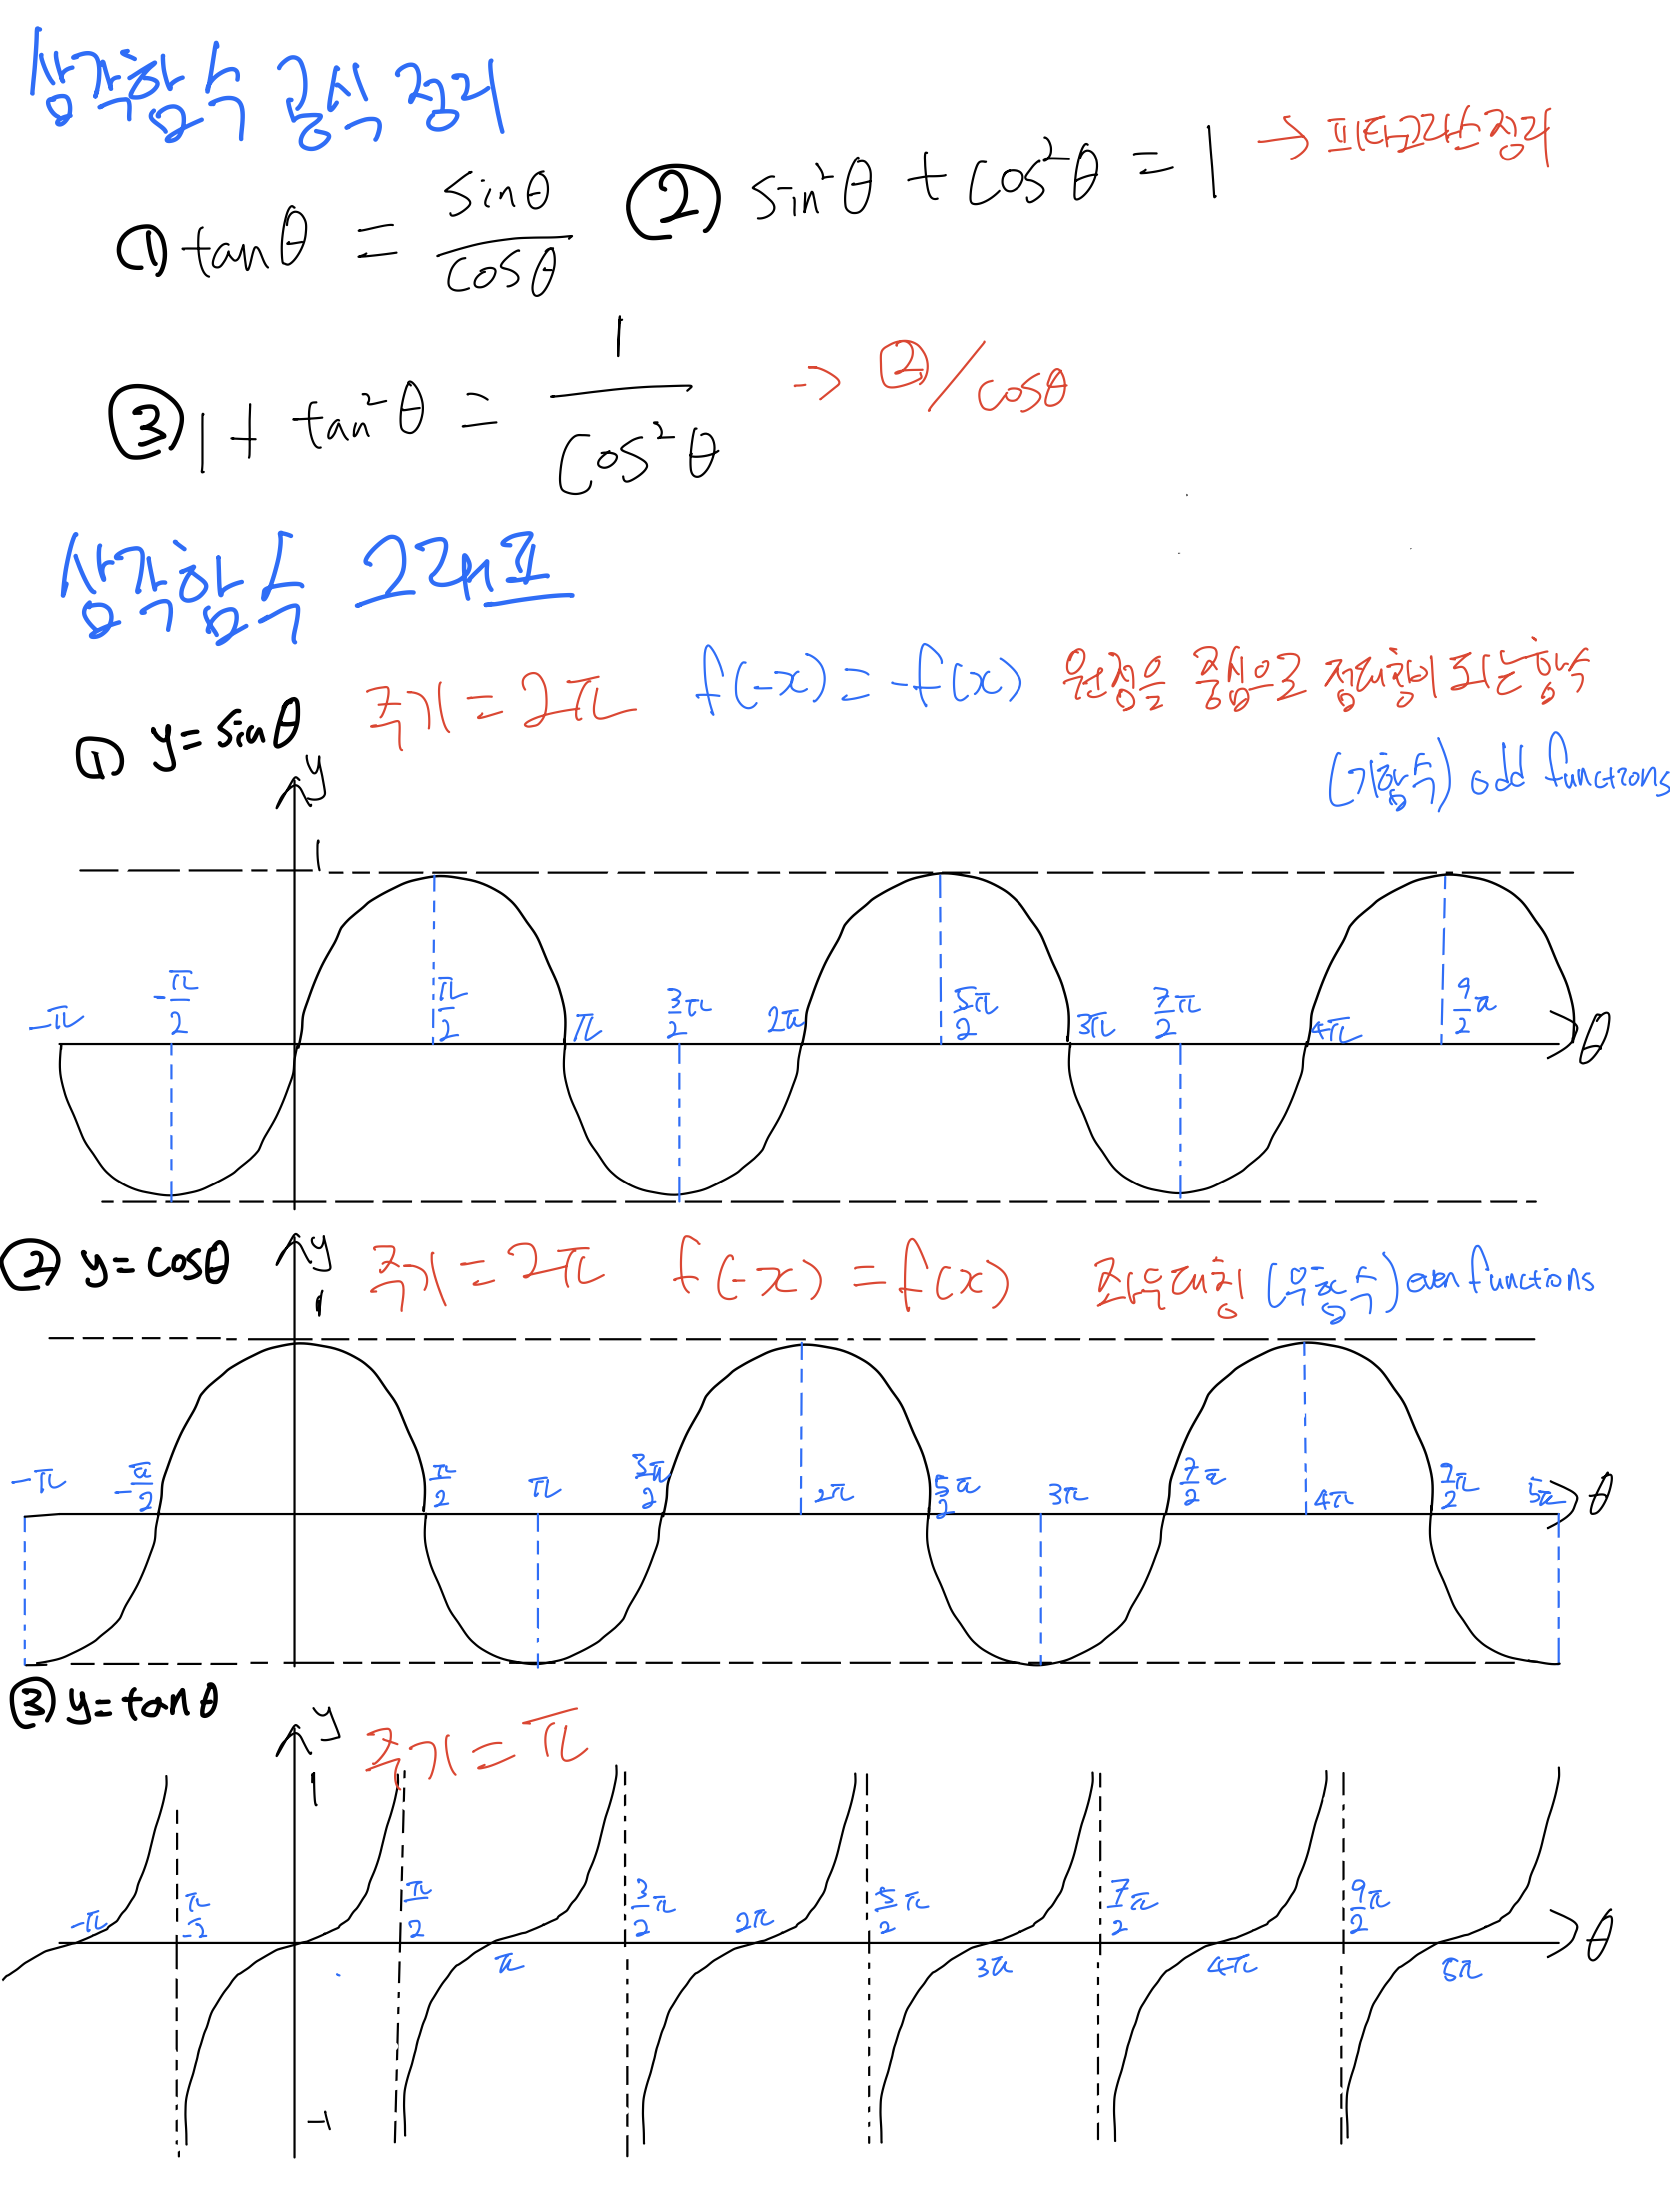 삼각함수 공식 정리
① tanθ = sinθ/cosθ ② sin²θ + cos²θ = 1 → 피타고라스정리
③ 1 + tan²θ = 1/cos²θ → ②/cosθ
삼각함수 그래프
① y = sinθ 주기 = 2π f(-x) = -f(x) 원점을 중심으로 점대칭이 되는 함수
(기함수) odd functions
y
1
-π -π/2 π/2 π 3/2π 2π 5π/2 3π 7/2π 4π 9/2π θ
② y = cosθ y 주기 = 2π f(-x) = f(x) 좌우대칭 (우함수) even functions
1
-π -π/2 π/2 π 3π/2 2π 5/2π 3π 7/2π 4π 5π θ
③ y = tanθ y 주기 = π
1
-π π/-2 π/2 3/2π 2π 5/2π 7/2π 9/2π θ
π 3π 4π 5π
-1